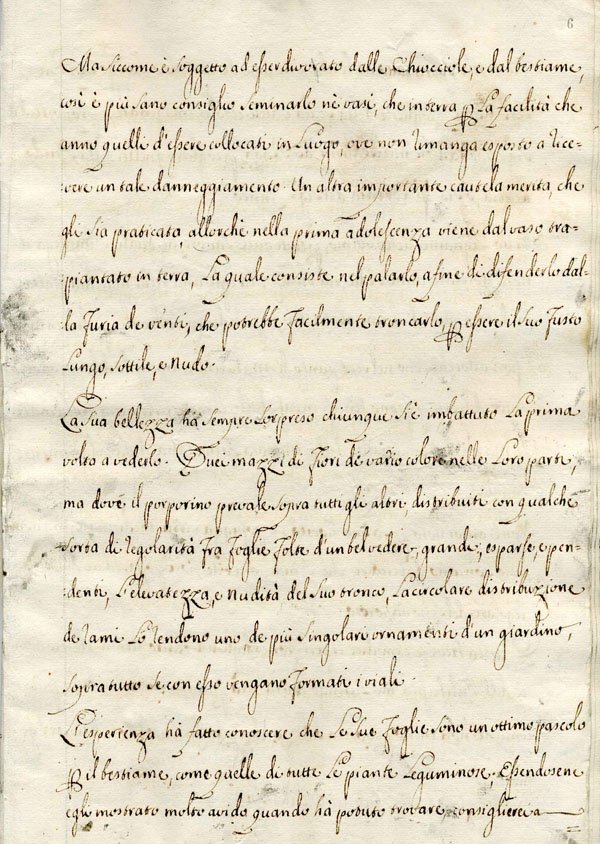 6
Ma siccome è soggetto ad esser divorato dalle Chiocciole, e dal bestiame,
così è più sano consiglio seminarlo nè vasi, che in terra ꝑ la facilità che
anno quelli d'essere collocati in luogo, ove non rimanga esposto a rice=
vere un tale danneggiamento. Un altra importante cautela merita, che
gli sia praticata, allorchè nella prima adolescenza viene dal vaso tra=
piantato in terra, la quale consiste nel palarlo, a fine di difenderlo dal=
la furia de venti, che potrebbe facilmente troncarlo, ꝑ essere il suo fusto
lungo, sottile, e nudo.
La sua bellezza ha sempre sorpreso chiunque si è imbattuto la prima
volta a vederlo. Quei mazzi di fiori di vario colore nelle loro parti,
ma dove il porporino prevale sopra tutti gli altri, distribuiti con qualche
sorta di regolarità fra foglie folte d'un bel vedere, grandi, esparse, e pen=
denti, l'elevatezza, e nudità del suo tronco, la circolare distribuzione
de rami lo rendono uno de più singolari ornamenti d'un giardino,
sopra tutto se con esso vengano formati i viali.
L'esperienza hà fatto conoscere che le sue foglie sono un ottimo pascolo
ꝑ il bestiame, come quelle di tutte le piante leguminose. Essendosene
egli mostrato molto avido quando hà potuto trovare, consiglierei a